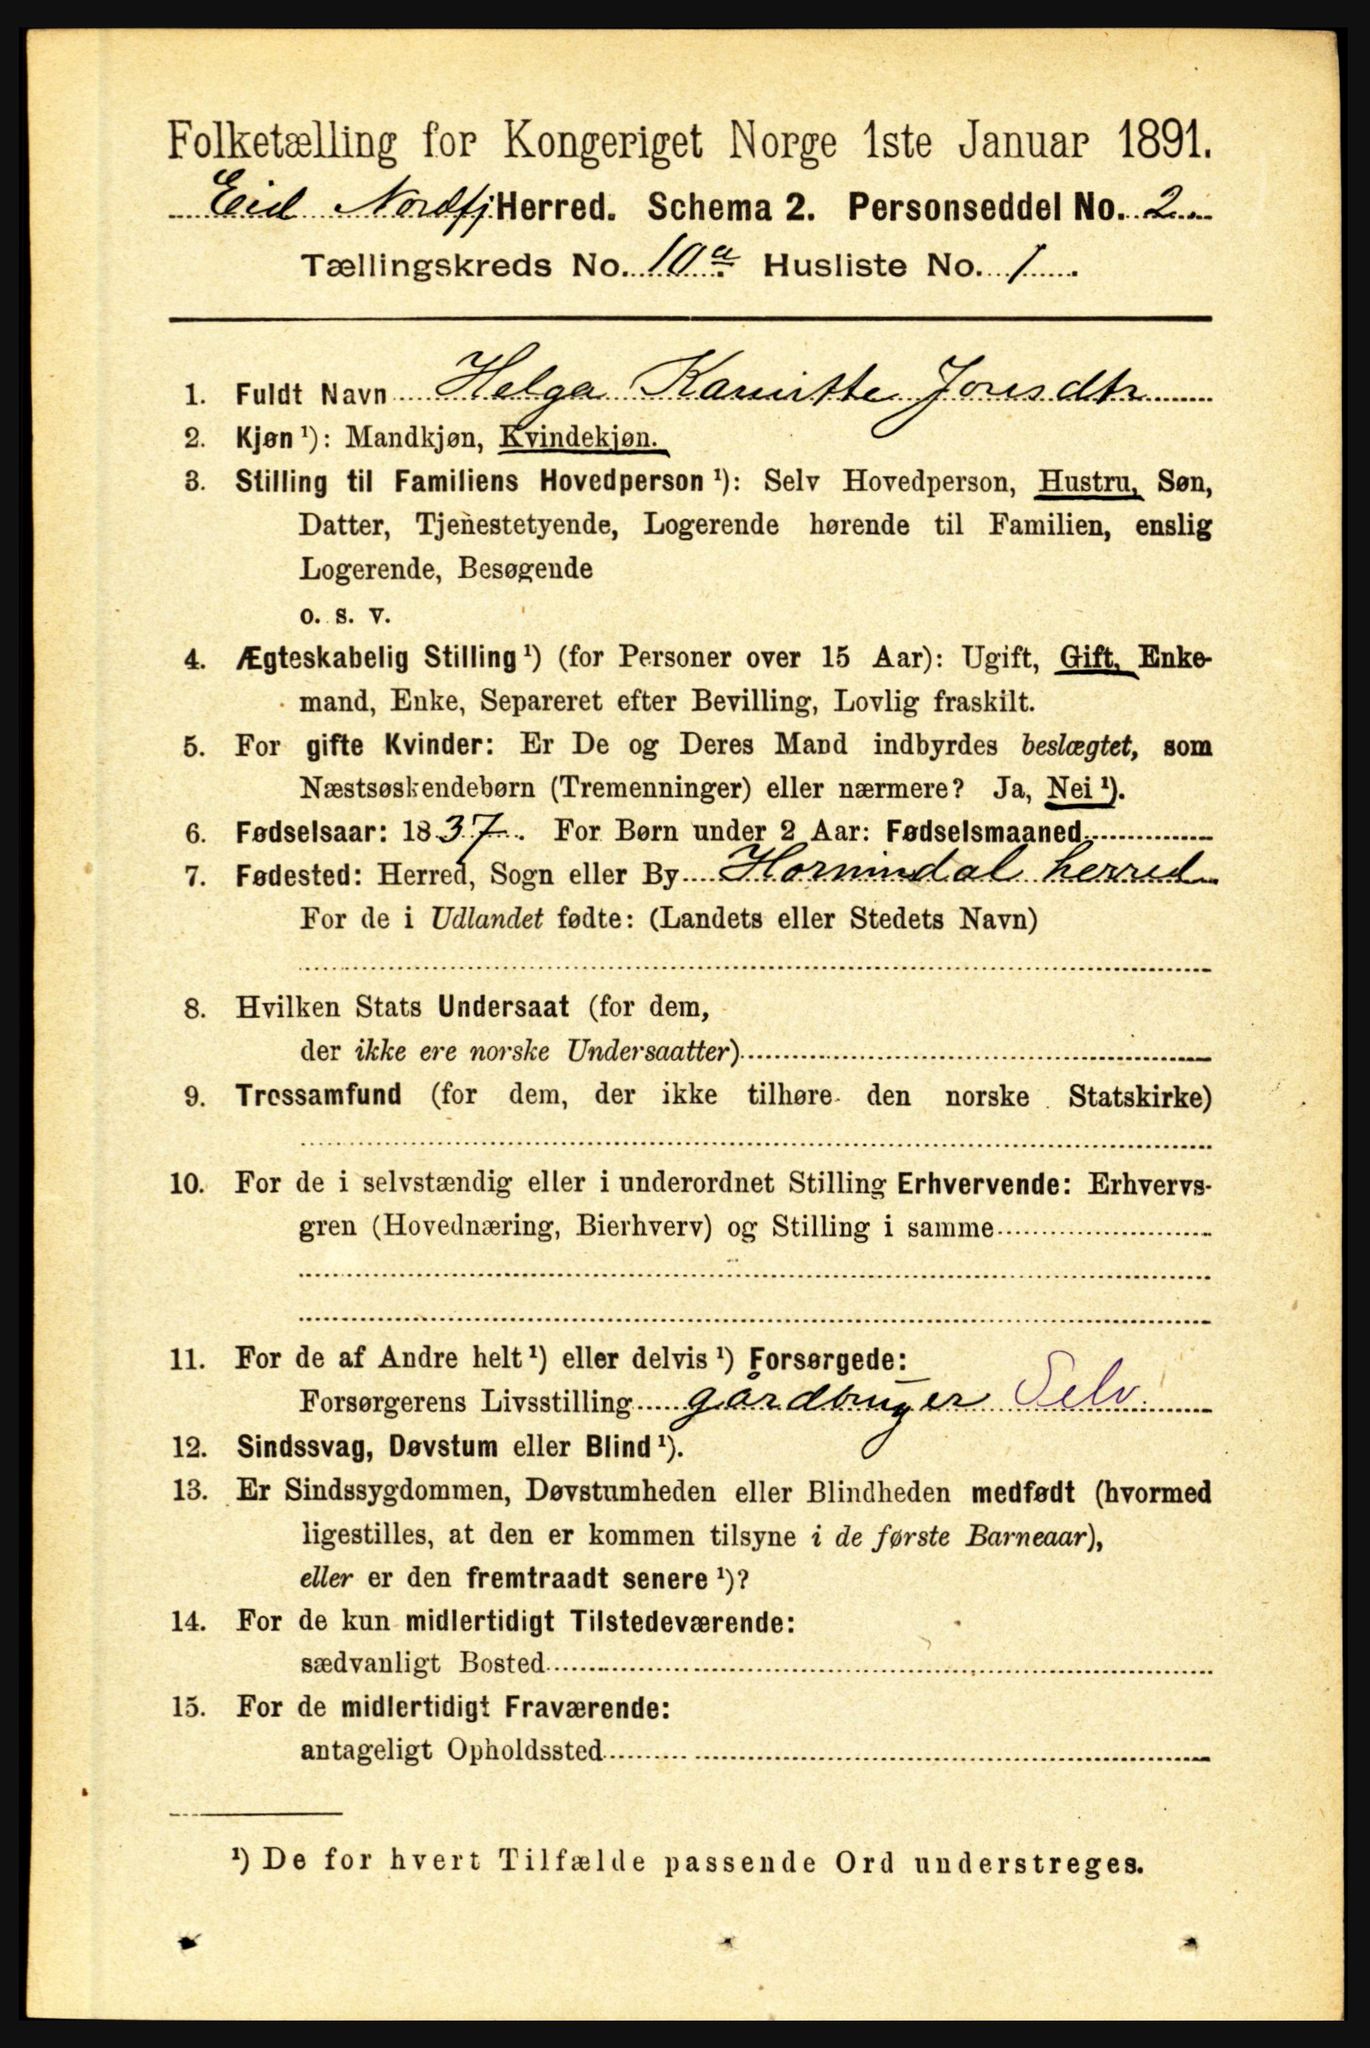 Folketælling for Kongeriget Norge 1ste Januar 1891.
Eid Nordfj Herred. Schema 2. Personseddel No. 2
Tællingskreds No. 10a Husliste No. 1.
1. Fuldt Navn Helga Jonsdtr
2. Kjøn ¹): Mandkjøn, Kvindekjøn.
3. Stilling til Familiens Hovedperson ¹): Selv Hovedperson, Hustru, Søn,
Datter, Tjenestetyende, Logerende hørende til Familien, enslig
Logerende, Besøgende
o. s. v.
4. Ægteskabelig Stilling ¹) (for Personer over 15 Aar): Ugift, Gift, Enke-
mand, Enke, Separeret efter Bevilling, Lovlig fraskilt.
5. For gifte Kvinder: Er De og Deres Mand indbyrdes beslægtet, som
Næstsøskendebørn (Tremenninger) eller nærmere? Ja, Nei ¹).
6. Fødselsaar: 1837. For Børn under 2 Aar: Fødselsmaaned
7. Fødested: Herred, Sogn eller By Hornindal herred
For de i Udlandet fødte: (Landets eller Stedets Navn)
8. Hvilken Stats Undersaat (for dem,
der ikke ere norske Undersaatter)
9. Trossamfund (for dem, der ikke tilhøre den norske Statskirke)
10. For de i selvstændig eller i underordnet Stilling Erhvervende: Erhvervs-
gren (Hovednæring, Bierhverv) og Stilling i samme
11. For de af Andre helt ¹) eller delvis ¹) Forsørgede:
Forsørgerens Livsstilling gårdbruger Selv
12. Sindssvag, Døvstum eller Blind ¹).
13. Er Sindssygdommen, Døvstumheden eller Blindheden medfødt (hvormed
ligestilles, at den er kommen tilsyne i de første Barneaar),
eller er den fremtraadt senere ¹)?
14. For de kun midlertidigt Tilstedeværende:
sædvanligt Bosted
15. For de midlertidigt Fraværende:
antageligt Opholdssted
¹) De for hvert Tilfælde passende Ord understreges.